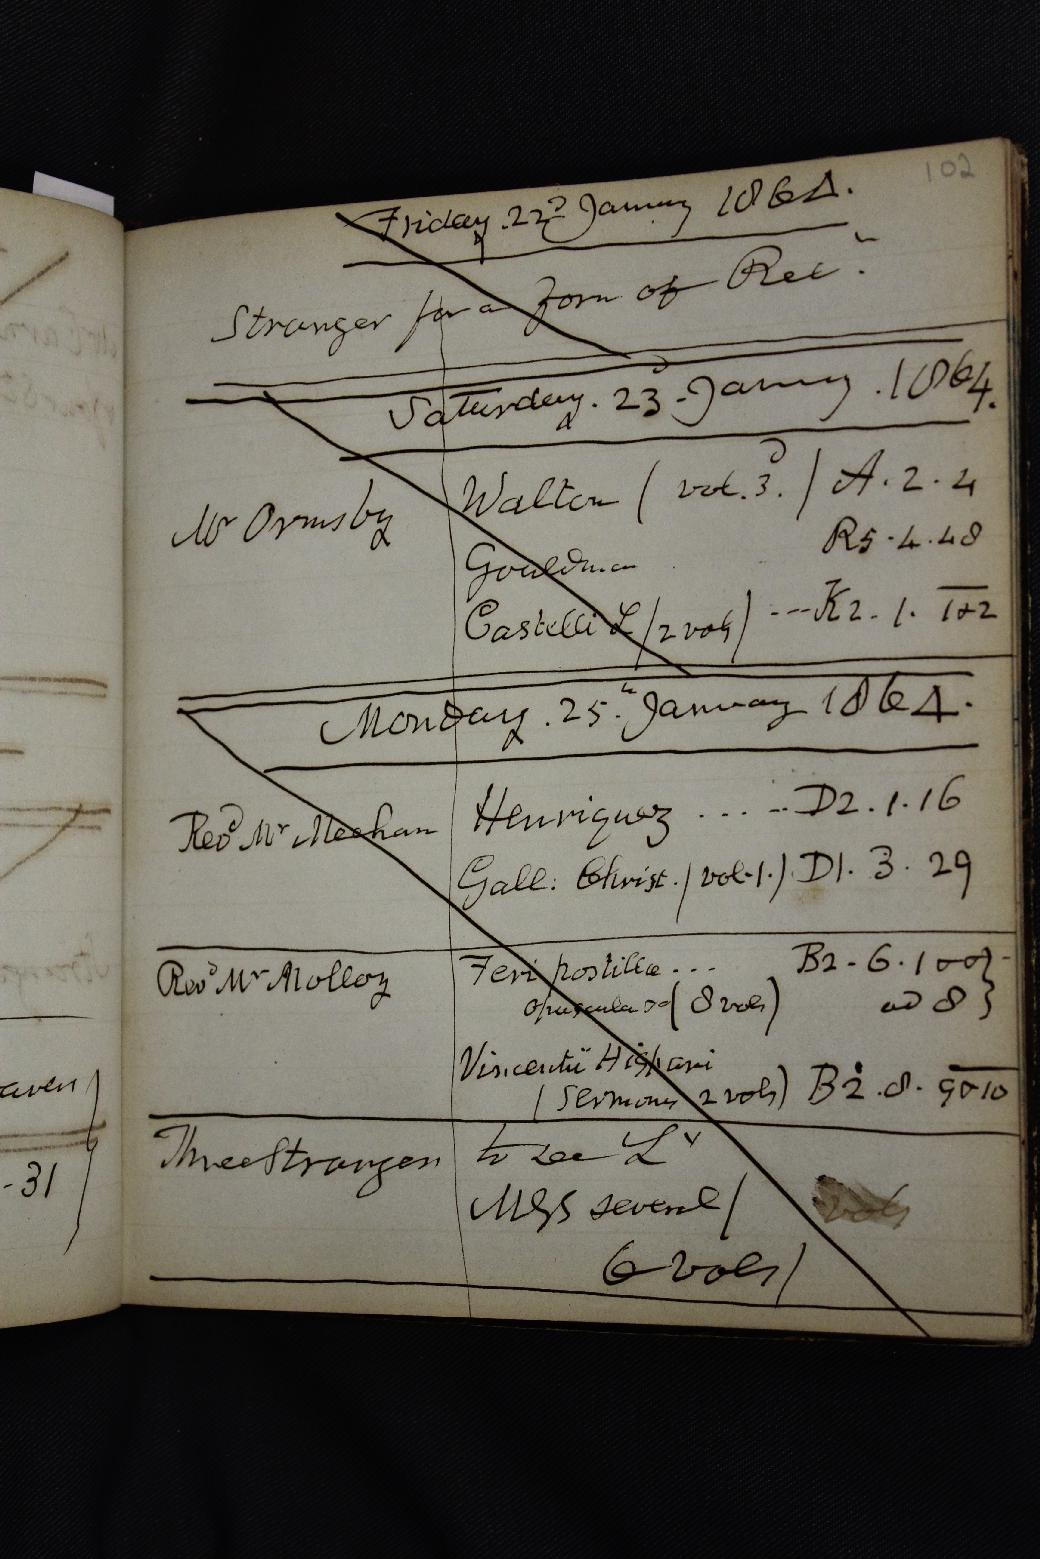 102
Friday. 22d January 1864.
Stranger for a Form of Rec
Saturday. 23d January. 1864.
Mr Ormsby Walton ( vol. 3. ) A. 2. 4
Gouldman R5. 4. 48
Castelli L (2 vols) --- K2. 1. 1+2
Monday. 25th January 1864.
Revd Mr Meehan Henriquez .... -- D2. 1. 16
Gall: Christ. ( vol. 1. ) D1. 3. 29
Revd Mr Molloy Feri postillæ ... B2. 6. 1
opuscula ( 8 vols) ad 8 }
Vincentii Hispani
( Sermones 2 vols) B2. 8. 9
Three Strangers to see Ly
MSS several (
6 vols)
vols
aven
-31